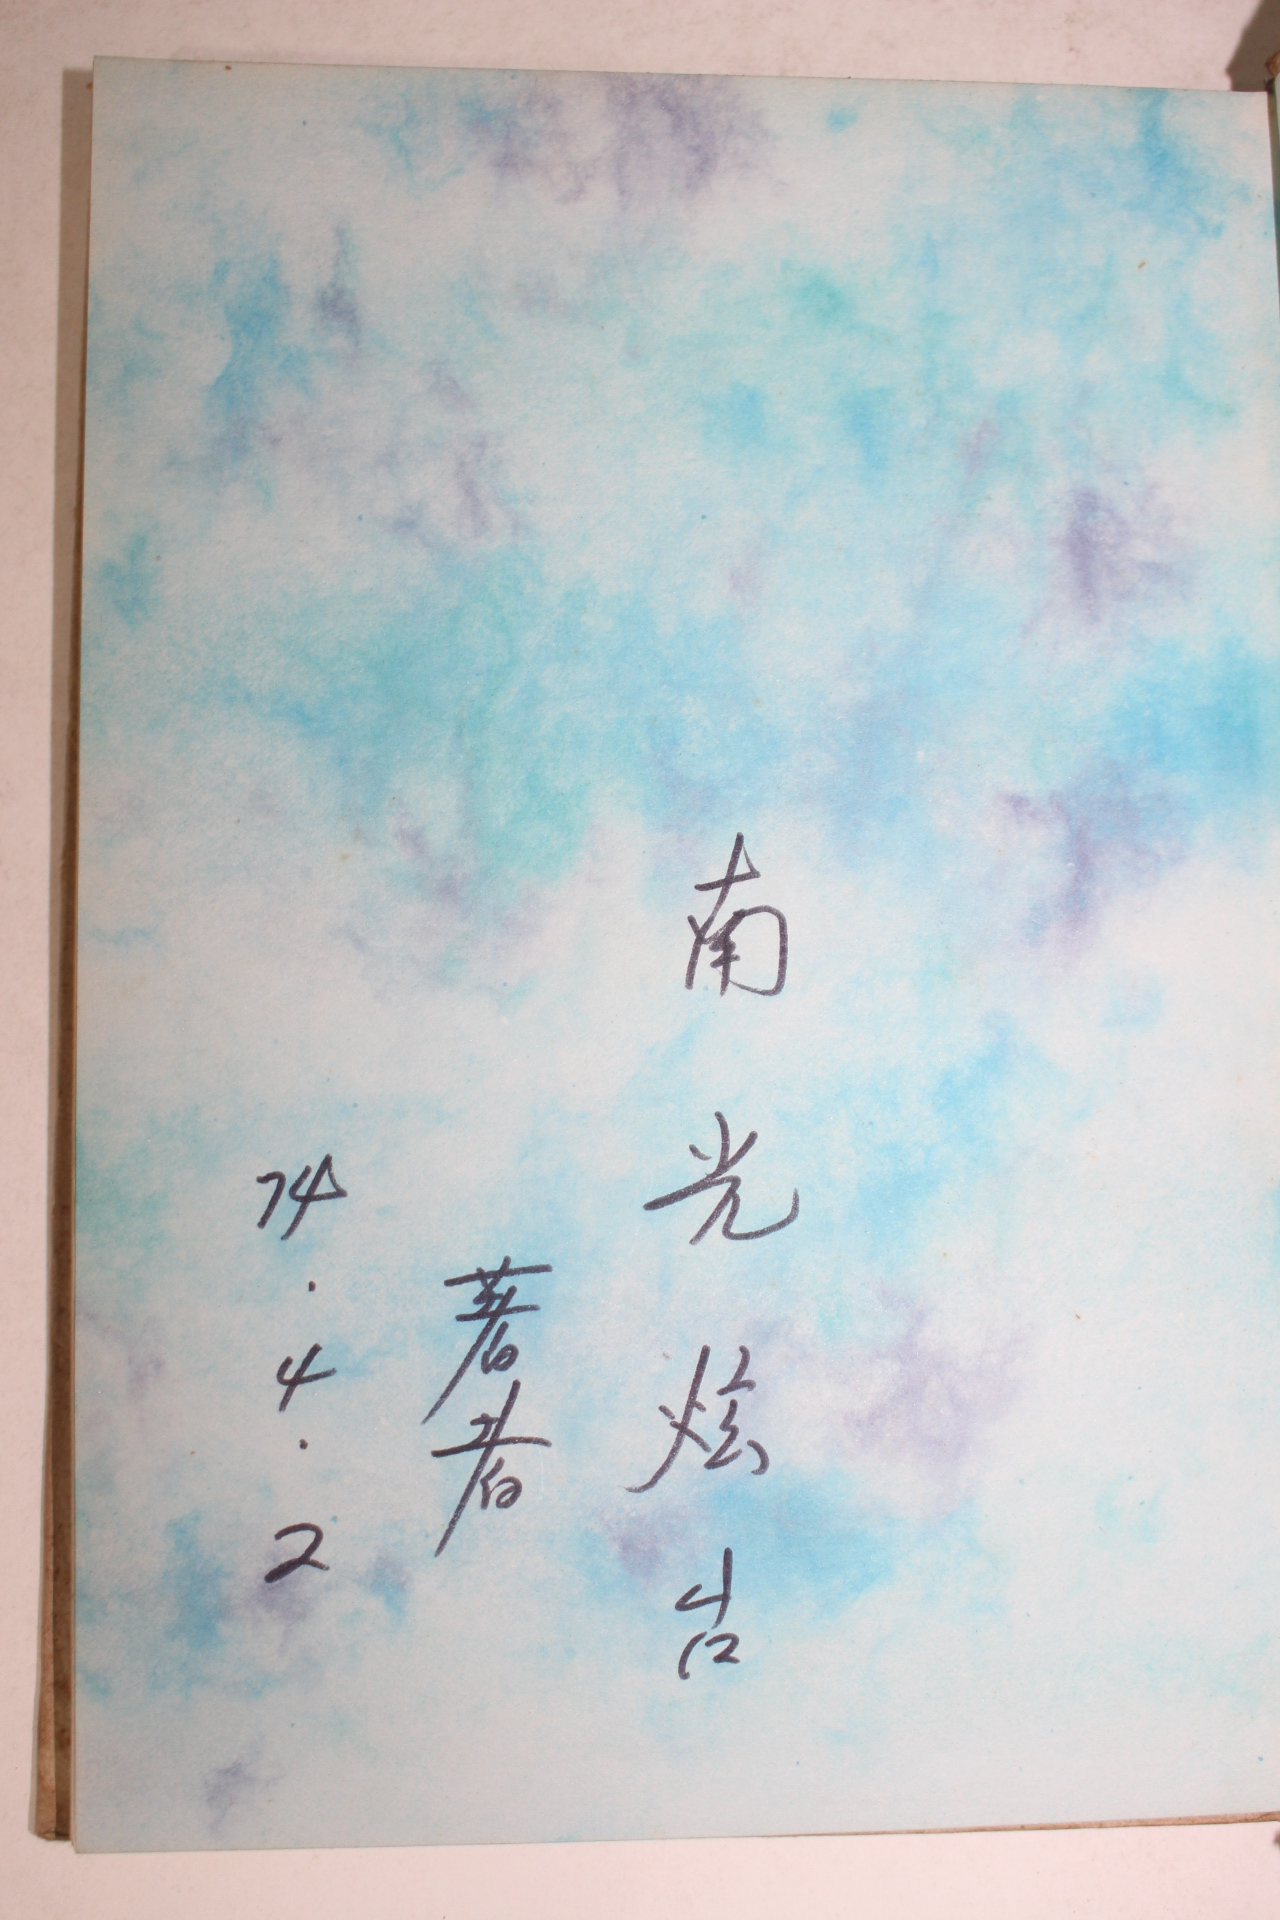 南光炫 台
著者
74.4.2